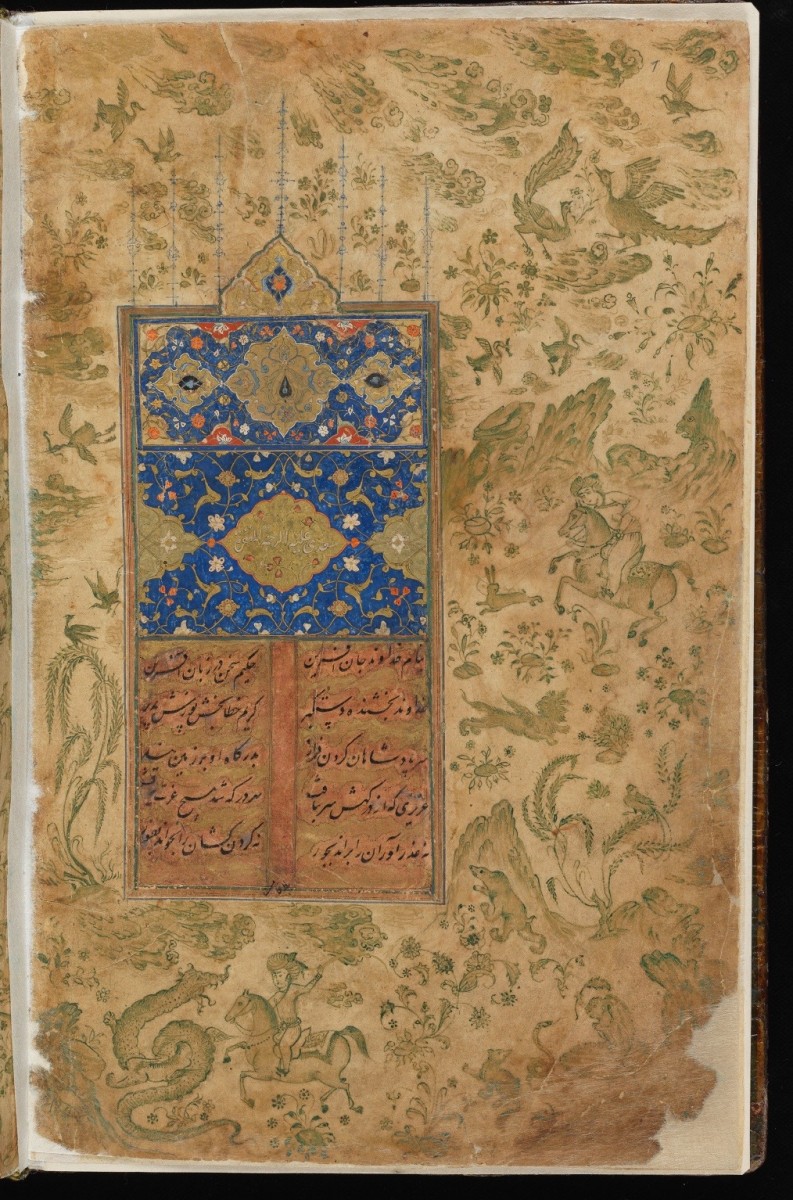 1
بنام خداوند جان آفرین حکیم سخن در زبان آفرین
خداوند بخشنده دستگیر کریم خطابخش پوزش پذیر
سر پادشاهان کردن فراز بدرکاه او بر زمین نیاز
عزیزی که از درکهش سر بتافت بهر در که شد هیچ عزت نیافت
نه عذر آوران را براند بجور نه کردن کشان را بفور